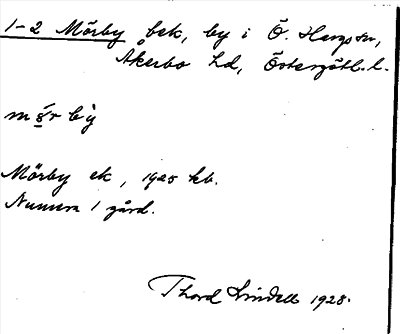 1-2 Mörby bek, by i Ö. Hargs sn,
Åkerbo hd, Östergötl. l.
mö́r bỳ
Mörby ek, 1925 kb.
Numera 1 gård.
Thord Lindell 1928.